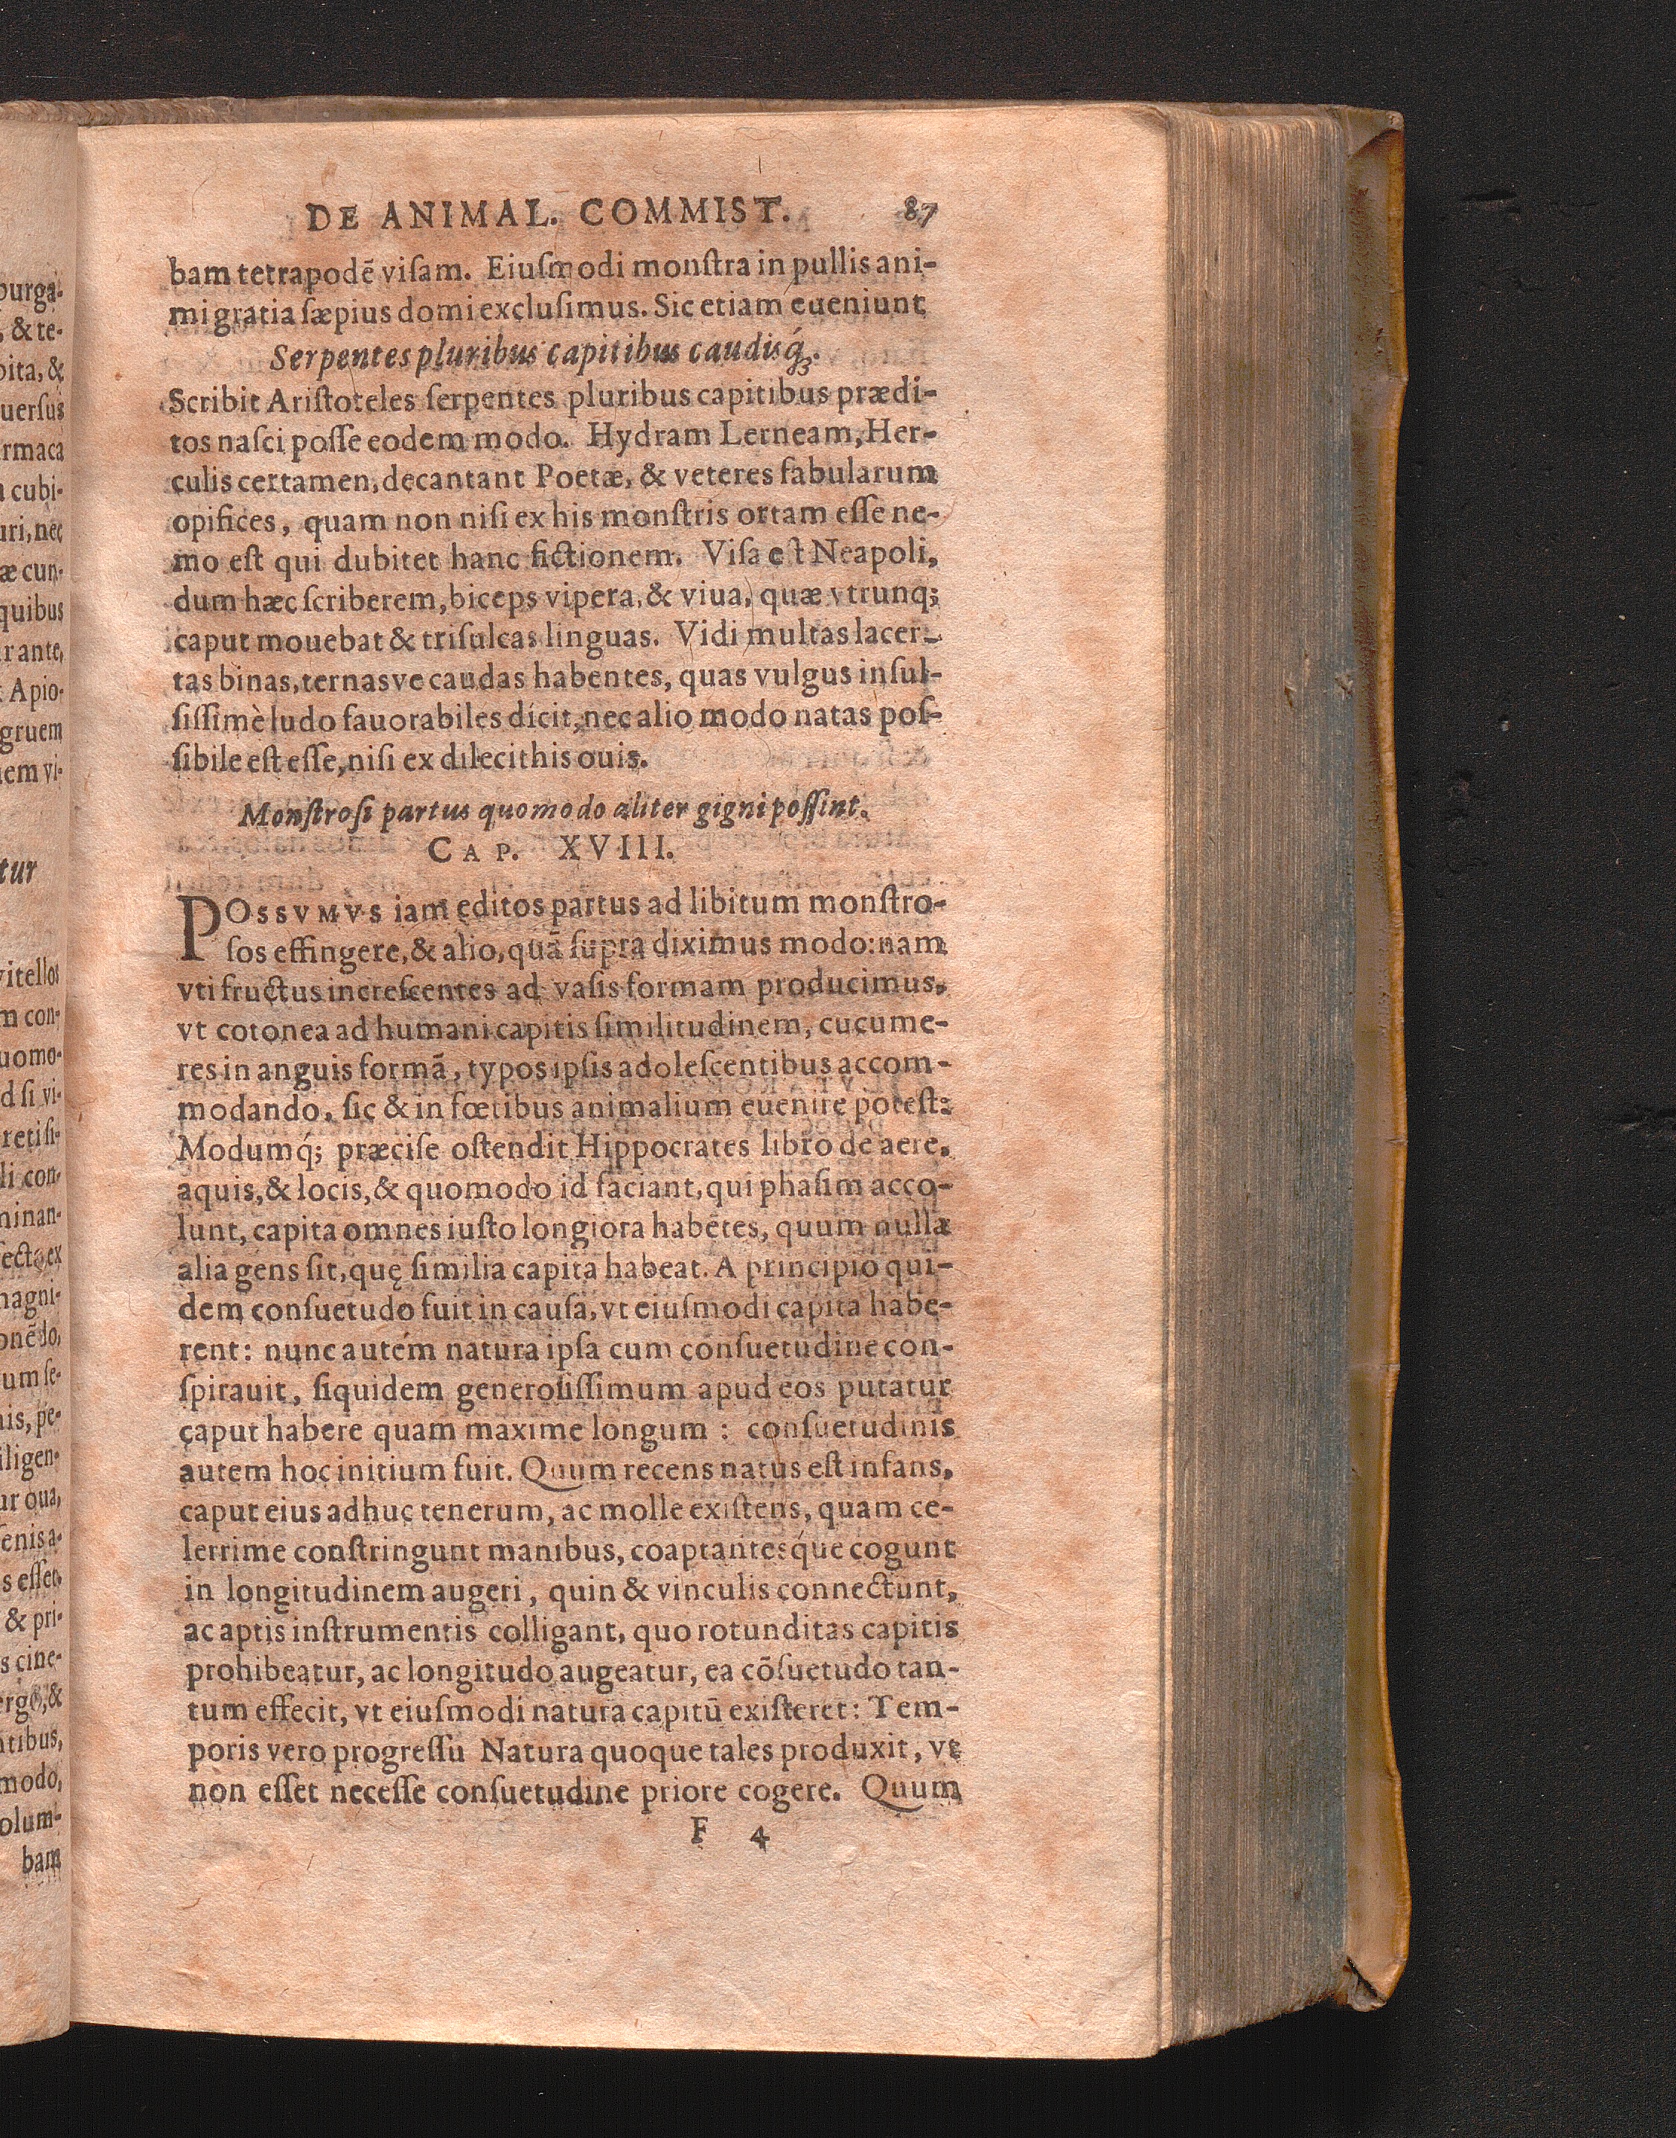 DE ANIMAL. COMMIST. 87
bam tetrapodē viſam. Eiuſmodi monſtra in pullis ani-
mi gratia ſæpius domi excluſimus. Sic etiam eueniunt
Serpentes pluribus capitibus caudisq́;.
Scribit Ariſtoteles ſerpentes pluribus capitibus prædi-
tos naſci poſſe eodem modo. Hydram Lerneam, Her-
culis certamen, decantant Poetæ, & veteres fabularum
opifices, quam non niſi ex his monſtris ortam eſſe ne-
mo eſt qui dubitet hanc fictionem. Viſa eſt Neapoli,
dum hæc ſcriberem, biceps vipera, & viua, quæ vtrunq;
caput mouebat & triſulcas linguas. Vidi multas lacer-
tas binas, ternasve caudas habentes, quas vulgus inſul-
ſiſſimè ludo fauorabiles dicit, nec alio modo natas poſ-
ſibile eſt eſſe, niſi ex dilecithis ouis.
Monſtroſi partus quomodo aliter gigni poſſint.
CAP. XVIII.
POSSVMVS iam editos partus ad libitum monſtro-
ſos effingere, & alio, quā ſupra diximus modo: nam
vti fructus increſcentes ad vaſis formam producimus,
vt cotonea ad humani capitis ſimilitudinem, cucume-
res in anguis formā, typos ipſis adoleſcentibus accom-
modando, ſic & in fœtibus animalium euenire poteſt:
Modumq́; præciſe oſtendit Hippocrates libro de aere,
aquis, & locis, & quomodo id faciant, qui phaſim acco-
lunt, capita omnes iuſto longiora habētes, quum nulla
alia gens ſit, quę ſimilia capita habeat. A principio qui-
dem conſuetudo fuit in cauſa, vt eiuſmodi capita habe-
rent: nunc autem natura ipſa cum conſuetudine con-
ſpirauit, ſiquidem generoſiſſimum apud eos putatur
caput habere quam maxime longum: conſuetudinis
autem hoc initium fuit. Quum recens natus eſt infans,
caput eius adhuc tenerum, ac molle exiſtens, quam ce-
lerrime conſtringunt manibus, coaptantesq́ue cogunt
in longitudinem augeri, quin & vinculis connectunt,
ac aptis inſtrumentis colligant, quo rotunditas capitis
prohibeatur, ac longitudo augeatur, ea cōſuetudo tan-
tum effecit, vt eiuſmodi natura capitū exiſteret: Tem-
poris vero progreſſu Natura quoque tales produxit, vt
non eſſet neceſſe conſuetudine priore cogere. Quum
F 4